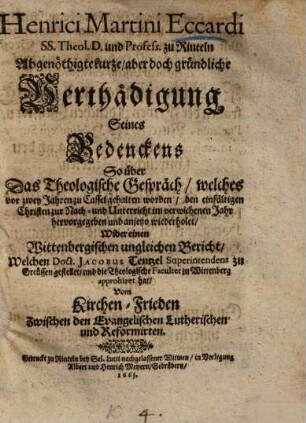 Henrici Martini Eccardi
SS. Theol. D. und Profess. zu Rinteln
Abgenöthigte kurze / aber doch gründliche
Verthädigung
Seines
Bedenckens
So über
Das Theologische Gespräch / welches
vor zwey Jahren zu Cassel gehalten worden / den einfältigen
Christen zur Nach- und Unterricht im verwichenen Jahr
hervorgegeben und anjetzo wiederholet /
Wider einen
Wittenbergischen ungleichen Bericht /
Welchen Doct. JACOBUS Tentzel Superintendens zu
Greüssen gestellet / und die Theologische Facultet zu Wittenberg
approbiret hat /
Vom
Kirchen-Frieden
zwischen den Evangelischen Lutherischen
und Reformirten.
Gedruckt zu Rinteln bey Sel. Lucii nachgelassener Witwen / in Verlegung
Albert und Henrich Meyern / Gebrüdern /
1663.
4.